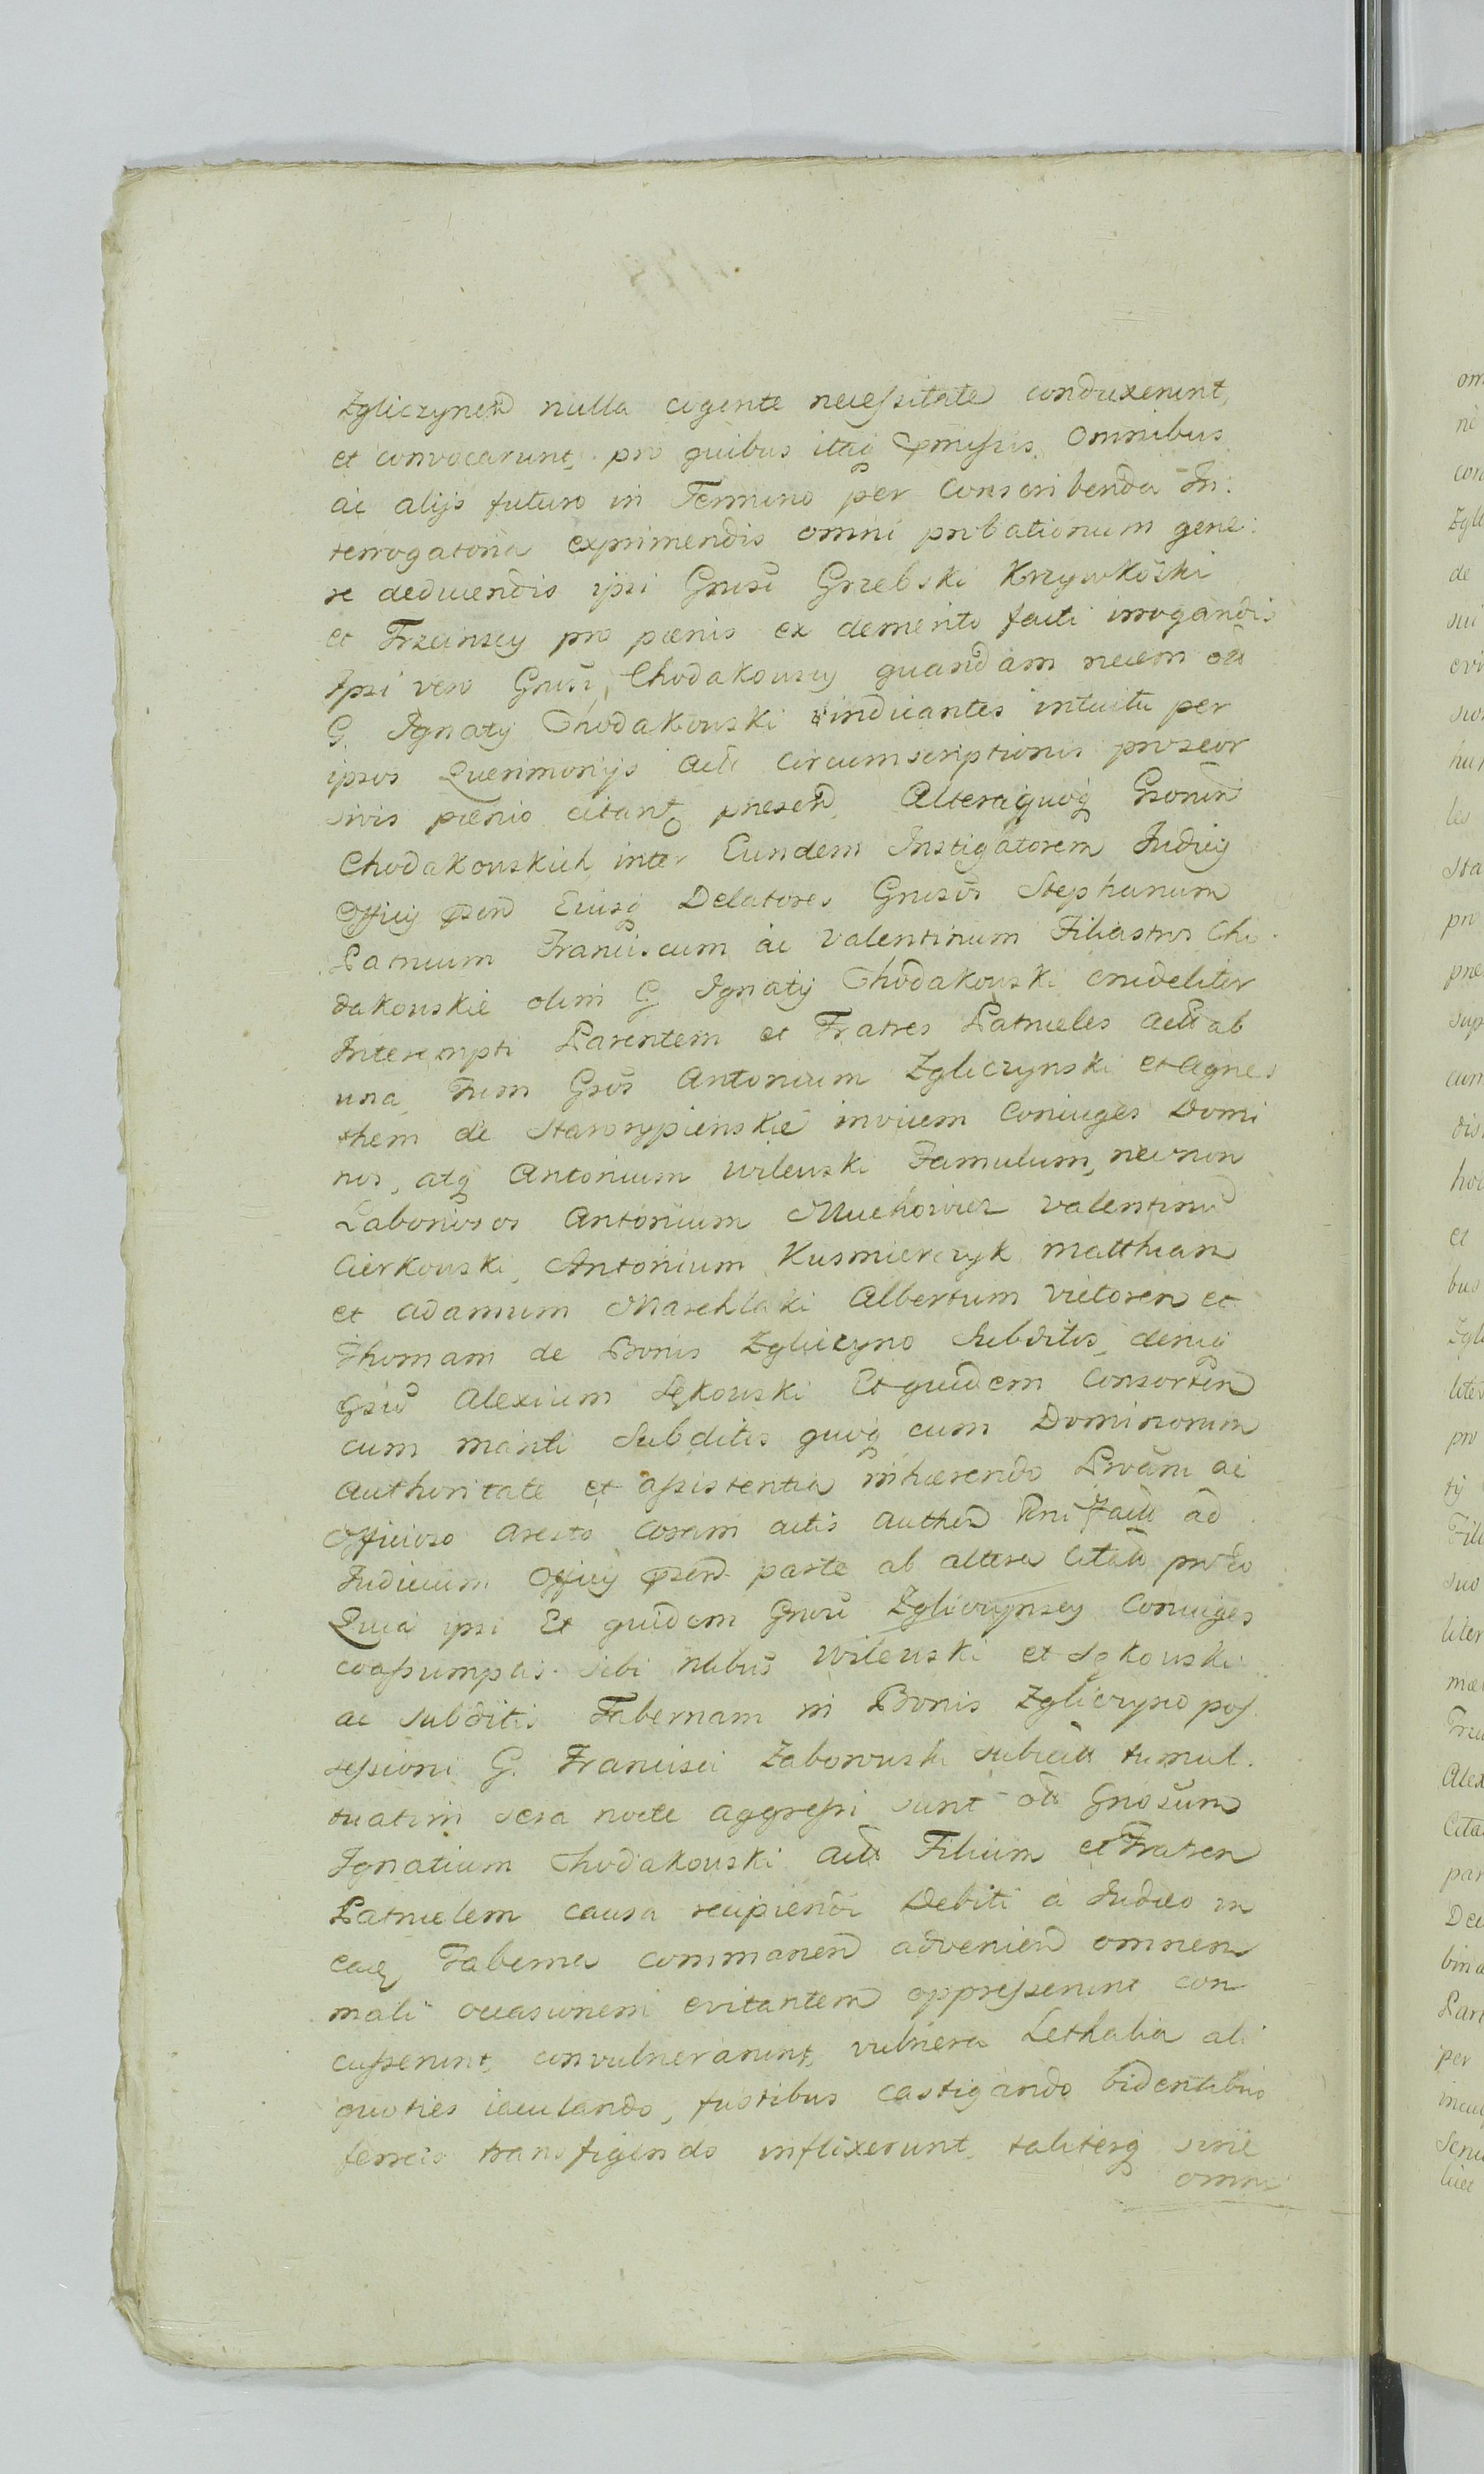 Zgliczynen nulla cogente necessitate conduxerunt,
et convocarunt, pro quibus itaq præmissis omnibus
ac alijs futuro in Termino per conscribenda In:
terrogatoria exprimendis omni probationum gene:
re deducendis ipsi Gnusi Grzebski Krzywkoski
et Trzcinscy pro pœnis ex demerito facti irrogandis
Ipsi vero Gnusi, Chodakouscy quandam necem oli
G. Ignatij Chodakouski vindicantes intuitu per
ipsos Querimonijs acti circumscriptionis prosecu
pœnis citant presen Alteraquoq Gsorum
Chodakouskich inter Eundem Instigatorem Judicij
Officij psen Eiusq Delatores Gnusos Stephanum
Patruum Franciscum ac Valentinum Filiastros Cho
dakouskie olim G. Ignatij Chodakouski crudeliter
Interempti Parentem et Fratres Patrueles act ab
una, Tum Gsos Antonium Zgliczynski et Agne
them de Starorypienskie invicem Coniuges Domi
nos, atq Antonium Wileuski Famulum, necnon
Laboriosos Antonium Muchowicz Valentinu
Cierkouski, Antonium Kusmierczyk Matthian
et Adamum Marchlaki Albertum Victoren et
Thomam de Bonis Zgliczyno Subditos, deniq
Gsu Alexium Sękouski Et quidem Consorten
cum mariti Subditis quoq cum Dominorum
Authoritate et assistentia inhærendo Privam ac
Officioso Aresto coram actis authen fact ad
Judicium Officij psen parte ab altera citat pro eo
Quia ipsi Et quidem Gnusi Zgliczynscy Coniuges
coassumptis sibi Nlibus Wileuski et Sękouski
ac subditis Tabernam in Bonis Zgliczyno pos
sessioni G. Francisci Zaborouski subiect tumul.
tuatim sera nocte aggressi sunt oli Gnosum
Ignatium Chodakouski act Filium et Fratren
Patruelem causa recipiendi Debiti a Judæo in
eaq Taberna commanen advenien omnem
mali occasionem evitantem oppresserunt con
cusserunt, convulnerarunt, vulnera Lethalia ali
quoties iaculando, fustibus castigando bidentibus
ferreis transfigendo inflixerunt, taliterq sine
omni